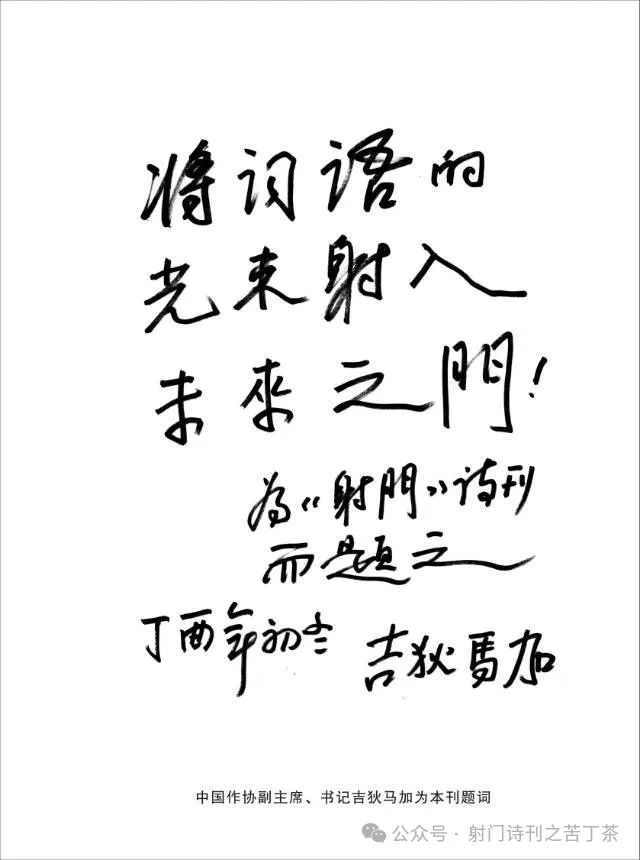 将词语的
光束射入
未來之門！
为《射門》诗刊
而题之
丁酉年初冬 吉狄馬加
中国作协副主席、书记吉狄马加为本刊题词
公众号·射门诗刊之苦丁茶